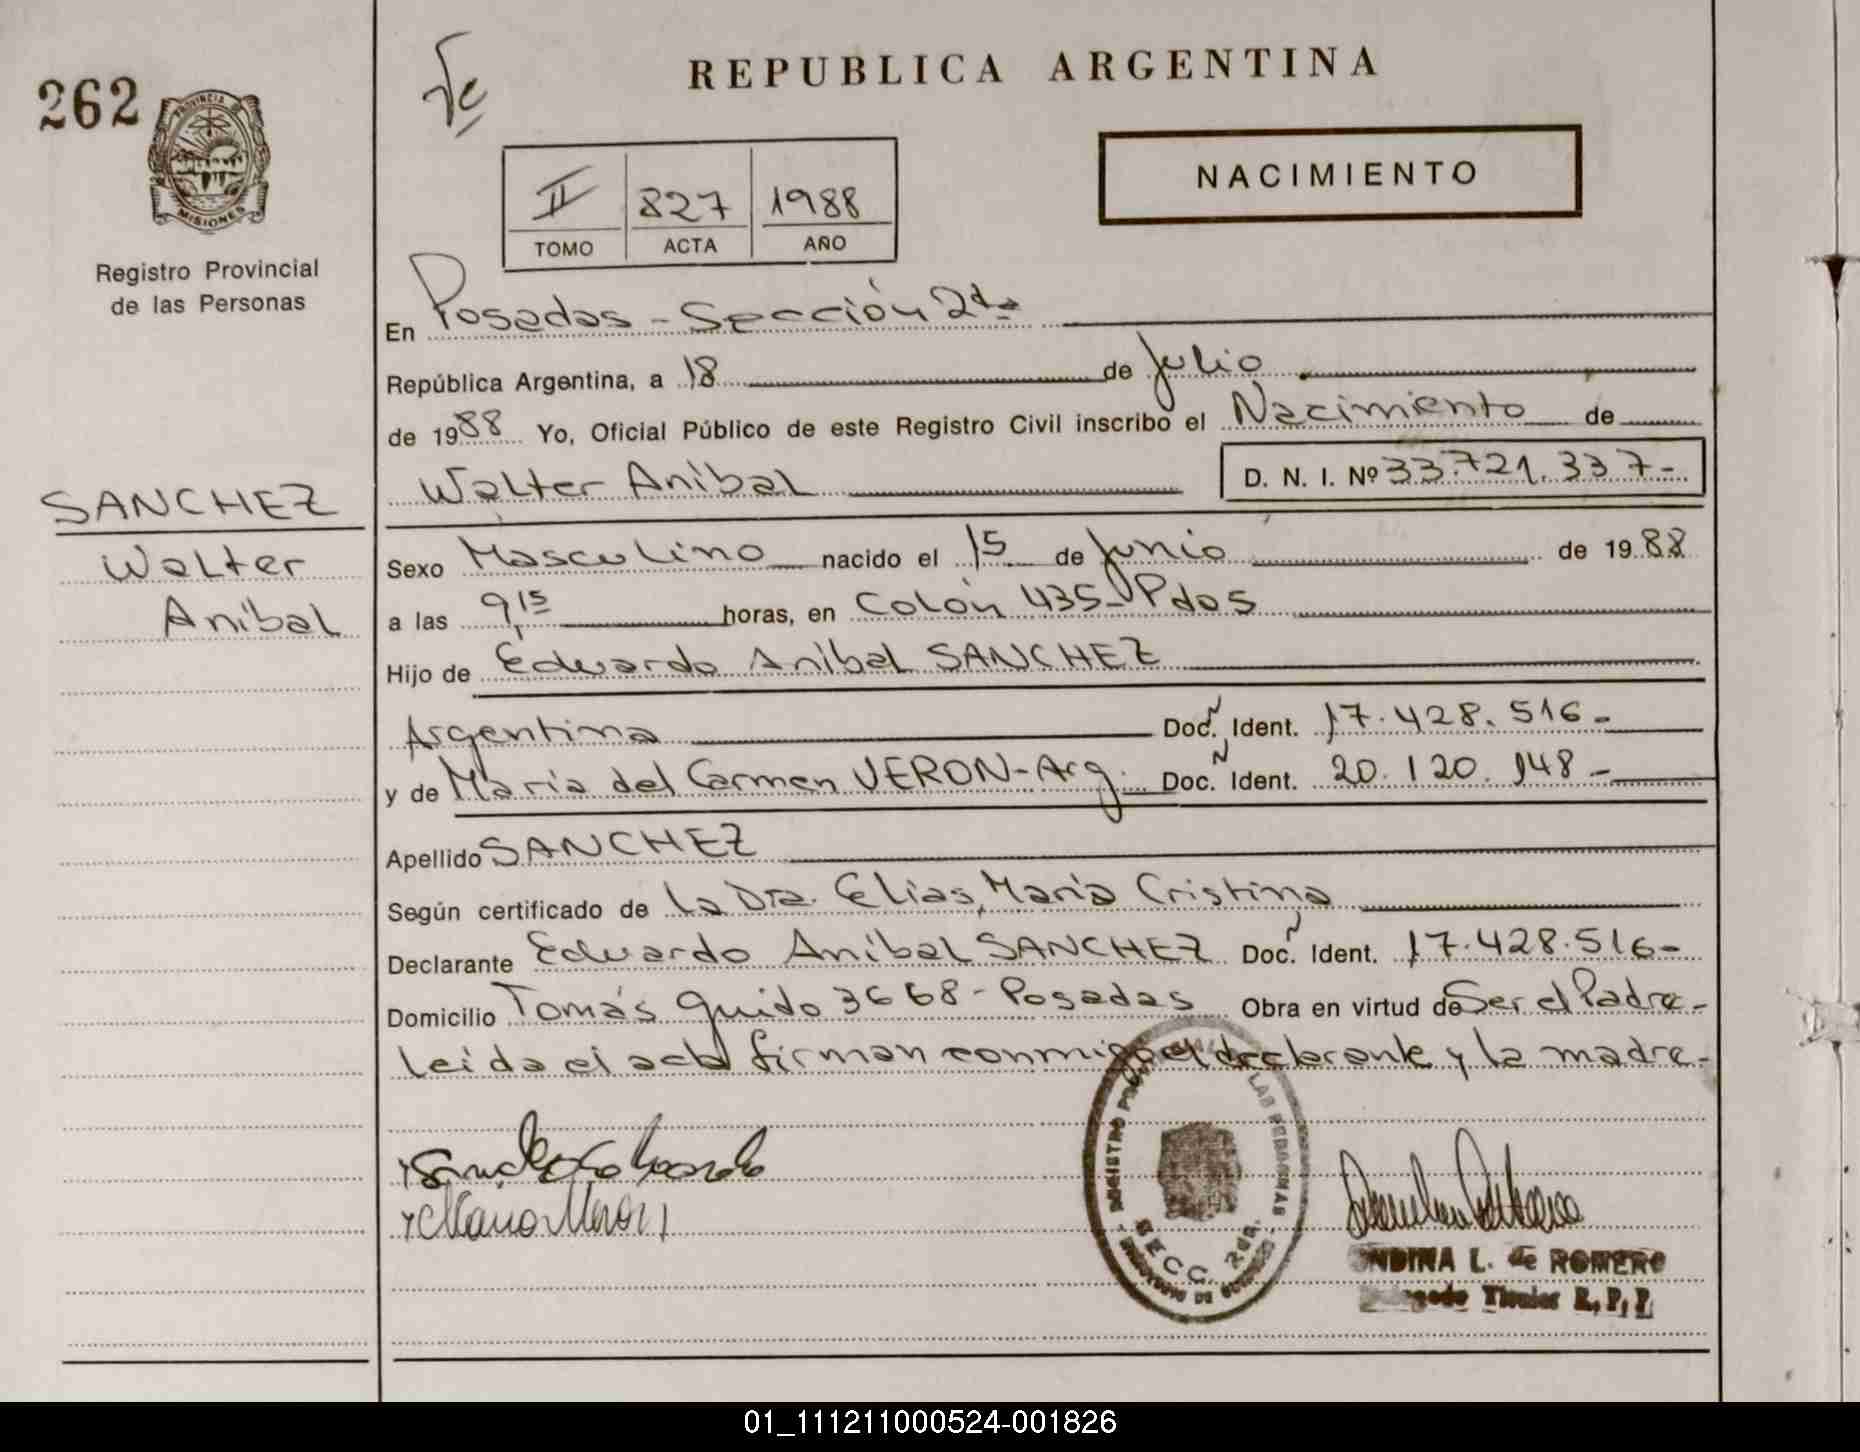 262
REPUBLICA ARGENTINA
NACIMIENTO
II 827 1988
TOMO ACTA AÑO
PROVINCIA DE
MISIONES
Registro Provincial
de las Personas
En Posadas - Sección 2da
República Argentina, a 18 de Julio
de 1988 Yo, Oficial Público de este Registro Civil inscribo el Nacimiento de
Walter Anibal D. N. I. Nº 33.721.337-
SANCHEZ
Walter
Anibal
Sexo Masculino nacido el 15 de Junio de 1988
a las 9,15 horas, en Colón 435-Pdas
Hijo de Eduardo Anibal SANCHEZ
Argentina Doc. N Ident. 17.428.516-
y de María del Carmen VERON-Arg. Doc. N Ident. 20.120.148-
Apellido SANCHEZ
Según certificado de la Dra. Elias, María Cristina
Declarante Eduardo Aníbal SANCHEZ Doc. N Ident. 17.428.516-
Domicilio Tomás Guido 3668-Posadas Obra en virtud de Ser el Padre-
Leida el acta firman conmigo el declarante y la madre-
REGISTRO LAS PERSONAS
SECC. 2da.
L. de ROMERO
Titular R.P.P.
01_111211000524-001826